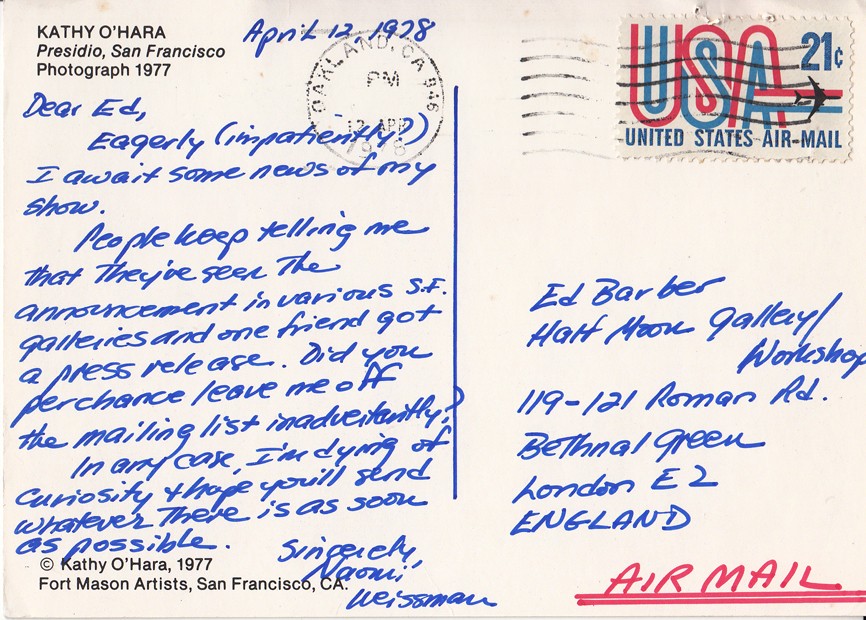 KATHY O'HARA
Presidio, San Francisco
Photograph 1977
April 12, 1978
OAKLAND, CA 946
PM
12 APR
1978
USA 21¢
UNITED STATES AIR-MAIL
Dear Ed,
Eagerly (impatiently?)
I await some news of my
show.
People keep telling me
that they've seen the
announcement in various S.F.
galleries and one friend got
a press release. Did you
perchance leave me off
the mailing list inadvertently?
In any case, I'm dying of
curiosity & hope you'll send
whatever there is as soon
as possible.
Sincerely,
Naomi
Weissman
© Kathy O'Hara, 1977
Fort Mason Artists, San Francisco, CA.
Ed Barber
Half Moon Gallery/
Workshop
119-121 Roman Rd.
Bethnal Green
London E2
ENGLAND
AIR MAIL